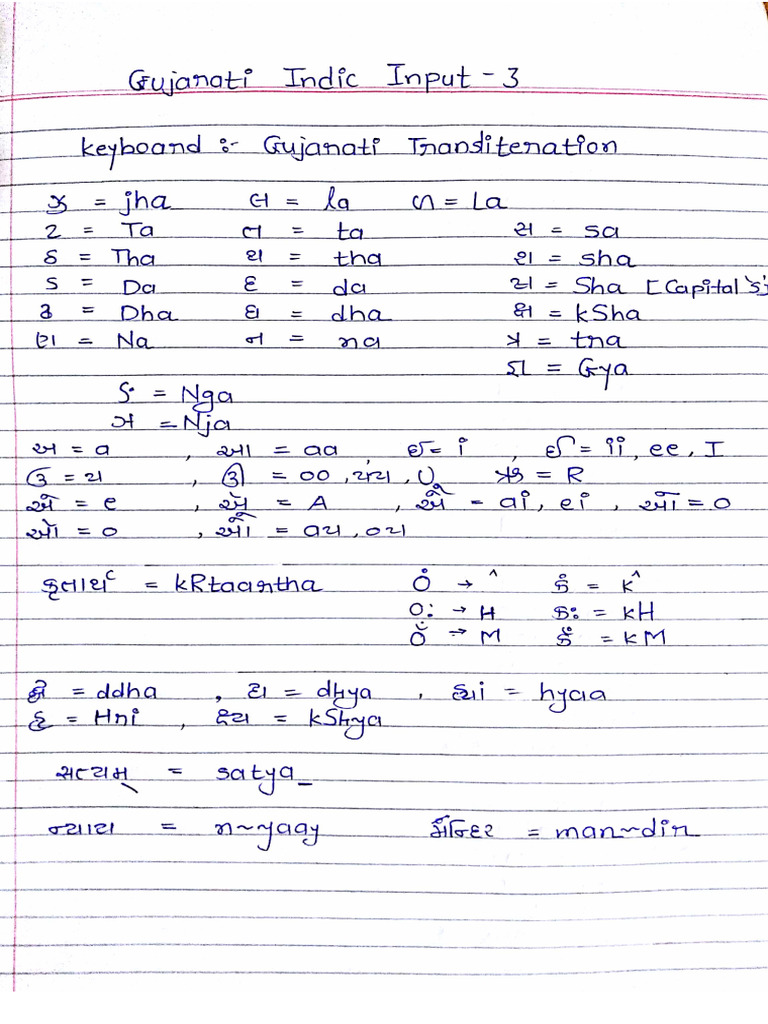 Gujarati Indic Input - 3
Keyboard :- Gujarati Transliteration
ઝ = jha લ = la ળ = La
ટ = Ta ત = ta સ = sa
ઠ = Tha થ = tha શ = sha
ડ = Da દ = da ષ = Sha [Capital 'S']
ઢ = Dha ધ = dha ક્ષ = kSha
ણ = Na ન = na ત્ર = tra
જ્ઞ = Gya
ઙ = Nga
ઞ = Nja
અ = a , આ = aa , ઇ = i , ઈ = ii, ee, I
ઉ = u , ઊ = oo, uu, U ઋ = R
એ = e , ઍ = A , ઐ = ai, ei , ઑ = O
ઓ = o , ઔ = au, ou
કૃતાર્થ = kRtaartha ં → ^ કં = k^
ઃ → H કઃ = kH
ઁ → M કઁ = kM
દ્ધ = ddha , = dhya , = hyaa
= Hri , = kShya
સત્યમ્ = satya_
ન્યાય = n~yaay મન્દિર = man~dir